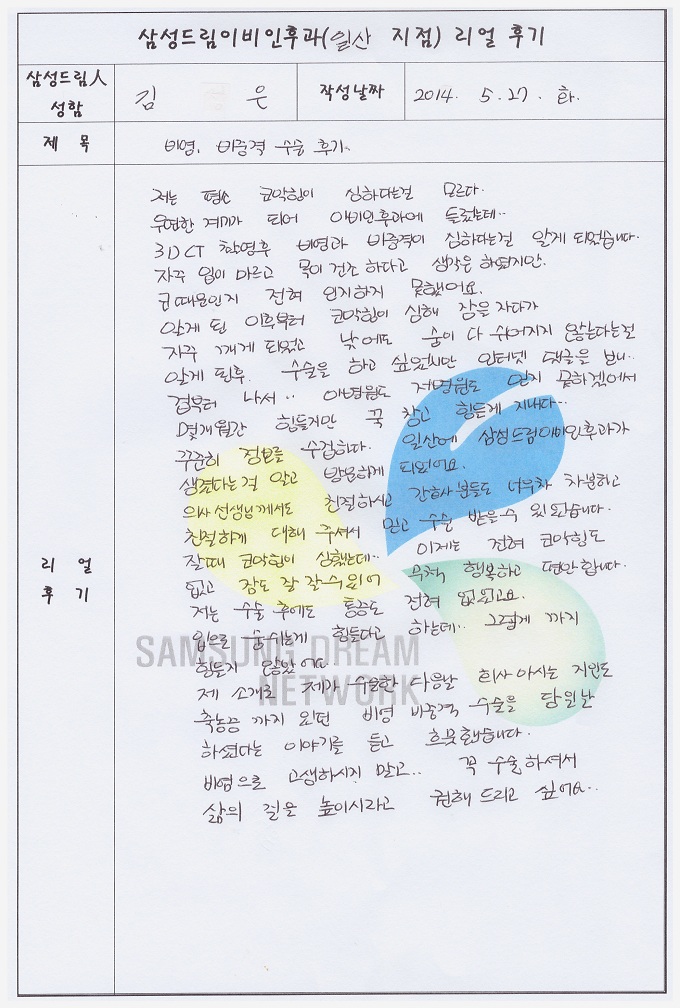 삼성드림이비인후과(일산 지점) 리얼 후기
삼성드림人 성함
김 은
작성날짜
2014. 5. 27. 화.
제 목
비염, 비중격 수술 후기.
리 얼 후 기
저는 평소 코막힘이 심하다는걸 모르다.
우연한 계기가 되어 이비인후과에 들렀는데..
3D CT 촬영후 비염과 비중격이 심하다는걸 알게 되었습니다.
자주 입이 마르고 목이 건조 하다고 생각은 하였지만.
코 때문인지 전혀 인지하지 못했어요.
알게 된 이후부터 코막힘이 심해 잠을 자다가
자주 깨게 되었고 낮에도 숨이 다 쉬어지지 않는다는걸
알게 된후. 수술을 하고 싶었지만 인터넷 댓글을 보니..
겁부터 나서.. 이병원도 저병원도 믿지 못하겠어서
몇개월간 힘들지만 꾹 참고 힘든게 지내다...
꾸준히 정보를 수집하다. 일산에 삼성드림이비인후과가
생겼다는걸 알고 방문하게 되었어요.
의사 선생님께서도 친절하시고 간호사 분들도 너무차 차분하고
친절하게 대해 주셔서 믿고 수술 받을수 있었습니다.
잘때 코막힘이 심했는데.. 이제는 전혀 코막힘도
없고 잠도 잘 잘수있어 무척 행복하고 편안합니다.
저는 수술 후에도 통증도 전혀 없었고요.
입으로 숨쉬는게 힘들다고 하는데.. 그렇게 까지
힘들지 않았어요.
제 소개로 제가 수술한 다음날 회사 아시는 지인도
축농증 까지 있던 비염 비중격 수술을 당일날
하셨다는 이야기를 듣고 흐뭇했습니다.
비염으로 고생하시지 말고.. 꼭 수술하셔서
삶의 질을 높이시라고 권해 드리고 싶어요..
SAMSUNG DREAM
NETWORK